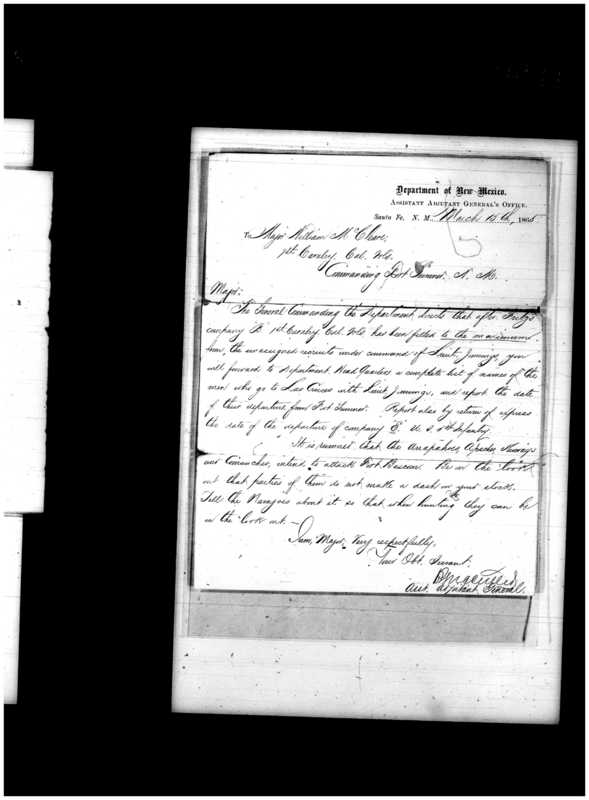 Department of New Mexico,
Assistant Adjutant General's Office,
Santa Fe, N. M., March 15th, 1865
To Major William McCleave,
1st Cavalry Cal. Vols.
Commanding Fort Sumner. N. M.
Major:
The General Commanding the Department directs that after Fritz's
company B. 1st Cavalry Cal. Vols. has been filled to the maximum
from the unassigned recruits under command of Lieut. Jennings, you
will forward to Department Head Quarters a complete list of names of the
men who go to Las Cruces with Lieut. Jennings, and report the date
of their departure from Fort Sumner. Report also by return of express
the date of the departure of company E U. S. Infantry.
It is rumored that the Arapahoes, Apaches, Kioways
and Comanches, intend to attack Fort Bascom. Be on the look
out that parties of them do not make a dash on your stock.
Tell the Navajoes about it so that when hunting they can be
on the look out. —
I am, Major, Very respectfully,
Your Obt. Servant.
Asst. Adjutant General.